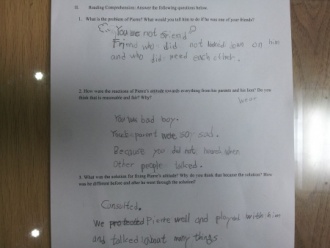 II. Reading Comprehension: Answer the following questions below.
1. What is the problem of Pierre? What would you tell him to do if he was one of your friends?
You are not friend?
Friend who did not on him
and who did need each other.
2. How were the reactions of Pierre's attitude towards everything from his parents and his lion? Do you
think that is reasonable and fair? Why?
bad moy.
parent were so sad.
Because you did not when
other people talked.
3. What was the solution for fixing Pierre's attitude? Why do you think that became the solution? How
was he different before and after he went through the solution?
We Pierre well and played with him
and talked about many things.